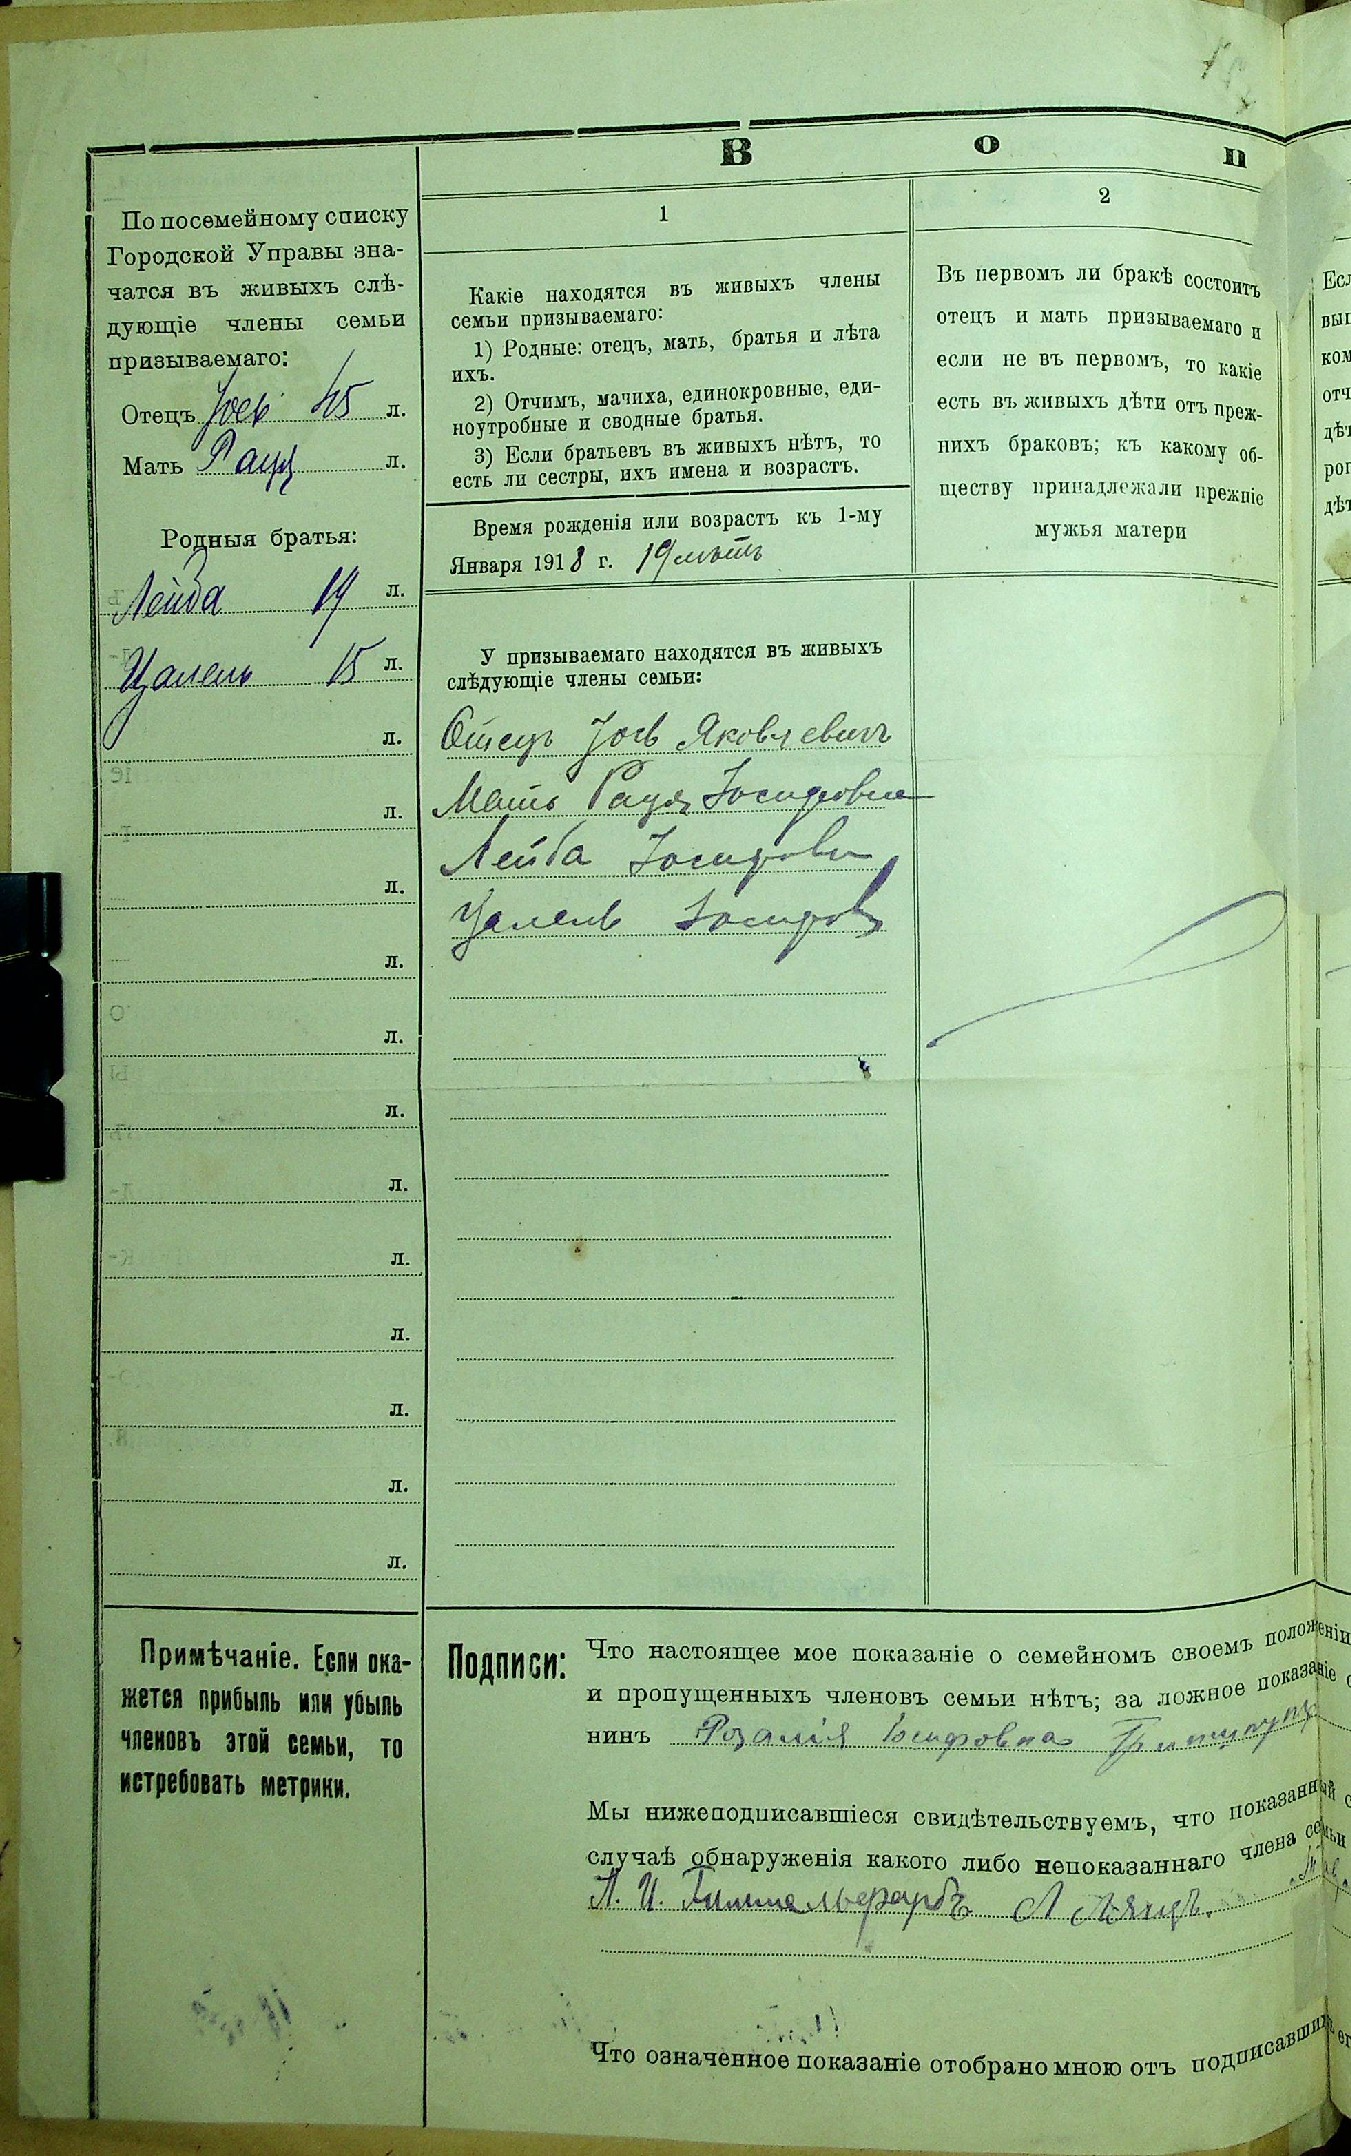 В о п
По посемейному списку
Городской Управы зна-
чатся въ живыхъ слѣ-
дующіе члены семьи
призываемаго:
Отецъ Іось 45 л.
Мать Раця л.
Родныя братья:
Лейба 19 л.
Цалель 15 л.
л.
л.
л.
л.
л.
л.
л.
л.
л.
л.
л.
л.
Примѣчаніе. Если ока-
жется прибыль или убыль
членовъ этой семьи, то
истребовать метрики.
1
Какіе находятся въ живыхъ члены
семьи призываемаго:
1) Родные: отецъ, мать, братья и лѣта
ихъ.
2) Отчимъ, мачиха, единокровные, еди-
ноутробные и сводные братья.
3) Если братьевъ въ живыхъ нѣтъ, то
есть ли сестры, ихъ имена и возрастъ.
Время рожденія или возрастъ къ 1-му
Января 1918 г. 19 лѣтъ
У призываемаго находятся въ живыхъ
слѣдующіе члены семьи:
Отецъ Іось Яковлевичъ
Мать Раця Іосифовна
Лейба Іосифовъ
Цалель Іосифовъ
2
Въ первомъ ли бракѣ состоитъ
отецъ и мать призываемаго и
если не въ первомъ, то какіе
есть въ живыхъ дѣти отъ преж-
нихъ браковъ; къ какому об-
ществу принадлежали прежніе
мужья матери
Подписи:
Что настоящее мое показаніе о семейномъ своемъ положеніи
и пропущенныхъ членовъ семьи нѣтъ; за ложное показаніе
нинъ Розалія
Мы нижеподписавшіеся свидѣтельствуемъ, что показанный
случаѣ обнаруженія какого либо непоказаннаго члена семьи
Л. И. Гиммельфарбъ Л
Что означенное показаніе отобрано мною отъ подписавших